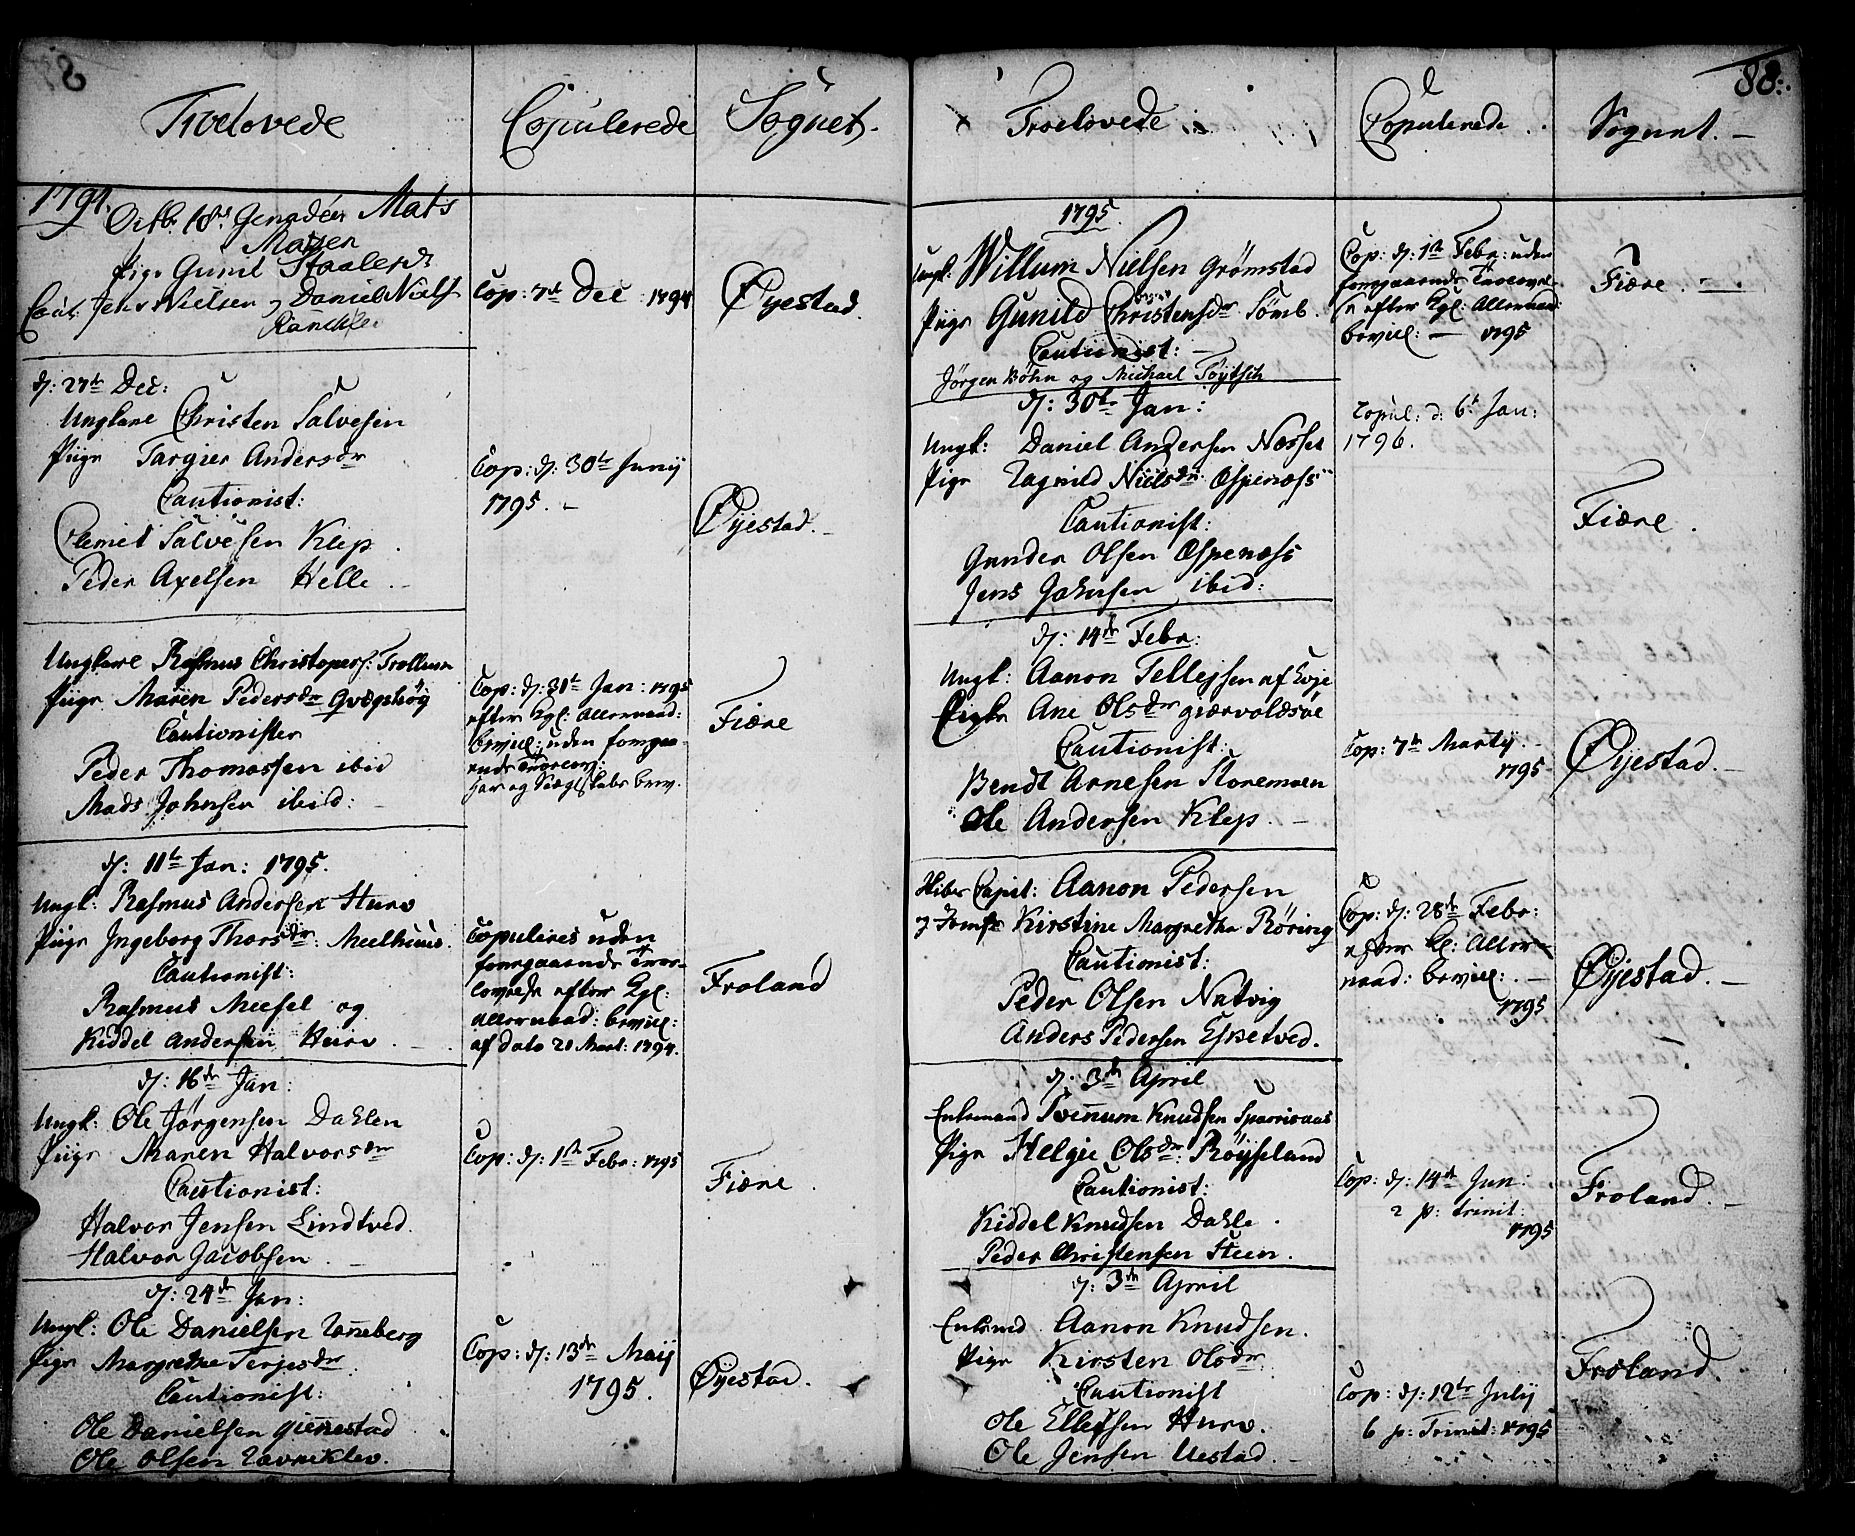 Troelovede
Copulerede
Sognet.
1794.
Octb. 18de Mats
Pige Gunil
Caut: Jens Nielsen og Daniel Niels
Cop: 7de Dec: 1794
Øyestad.
d: 27de Dec:
Ungkarl Christen Salvesen
Piige Targier Andersdr
Cautionist:
Clemet Salvesen Klep.
Peder Axelsen Helle.
Cop: d: 30te Junij
1795. -
Øyestad. -
Ungkarl Rasmus Christopers: Trollnæs
Piige Maren Pedersdr Qvægshøÿ
Cautionister
Peder Thomassen ibid
Mads Johnsen ibid: -
Cop: d: 31te Jan: 1795
efter Kgl: Allernaad:
bevill: uden foregaa-
ende Troelov:
Fiære
d: 11te Jan: 1795.
Ungk: Rasmus Andersen Hurv
Piige Ingeborg Thorsdr: Meelhuus.
Cautionist:
Rasmus Messel og
Kiddel Andersen Hurv. -
Copuleres uden
foregaaende Troe-
lovelse efter Kgl:
allernaad: bevill:
af Dato 21 Mart: 1794.
Froland
d: 16de Jan:
Ungk: Ole Jørgensen Dahlen
Piige Maren Halvorsdr
Cautionist:
Halvor Jensen Lindtved.
Halvor Jacobsen. -
Cop: d: 1ste Febr: 1795
Fiære.
d: 24de Jan:
Ungk: Ole Danielsen Ranneberg
Piige Margrethe Terjesdr.
Cautionist:
Ole Danielsen Giennestad
Ole Olsen Ravneklev.
Cop: d: 13de Maij
1795.
Øyestad.
88.
Troelovede
Copulerede.
Sognet. -
1795.
Ungk: Willum Nielsen Grømstad
Piige Gunild Christensdr Sømb.
Cautionist: -
Jørgen Bøhn og Michael Tøÿtsch
Cop: d: 1ste Febr: uden
foregaaende Troelovel-
se efter Kgl: Allernaad:
bevill: - 1795
Fiære. -
d: 30te Jan:
Ungk: Daniel Andersen Næsset
Pige Ragnild Nielsdr: Espenæss
Cautionist:
Gunder Olsen Espenæss
Jens Johnsen ibid:
Copul: d: 6te Jan:
1796.
Fiære.
d: 14de Febr:
Ungk: Aanon Tellefsen af Evje
Piige Ane Olsdr Giærvoldsøe
Cautionist:
Bendt Arnesen Storemoen
Ole Andersen Klep. -
Cop: 7de Martij.
1795
Øÿestad. -
Skibs Capit: Aanon Pedersen
og Jomfr Kirstine Margrethe Røring
Cautionist:
Peder Olsen Natvig
Anders Pedersen Esketved.
Cop: d: 28de Febr:
efter Kgl: Aller-
naad: bevill: -
1795
Øÿestad. -
d: 3de April
Enkemand Tvinnum Knudsen Sparrisaas
Pige Helgie Olsdr: Røÿseland
Cautionist:
Kiddel Knudsen Dahle.
Peder Christensen Steen.
Cop: d: 14de Jun:
2 p: trinit:
1795
Froland. -
d: 3de April
Enkemd Aanon Knudsen.
Pige Kirsten Olsdr
Cautionist
Ole Ellefsen Hurv.
Ole Jensen Uestad.
Cop: d: 12te Julij
6 p: Trinit: 1795
Froland.